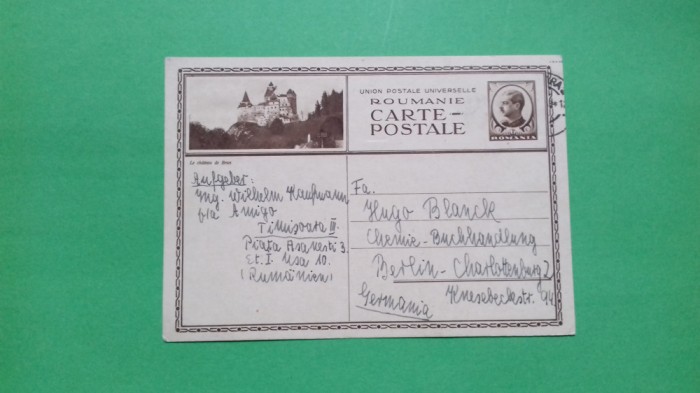 UNION POSTALE UNIVERSELLE
ROUMANIE
CARTE-
POSTALE
ROMANIA
Le château de Bran
Aufgeber:
Ing. Wilhelm Kaufmann
Amigo
Timișoara III.
Piața Asănești 3.
Et. I. Usa 10.
(Rumänien)
Fa.
Hugo Blanck
Chemie-Buchhandlung
Berlin-Charlottenburg 2
Knesebeckstr. 94
Germania